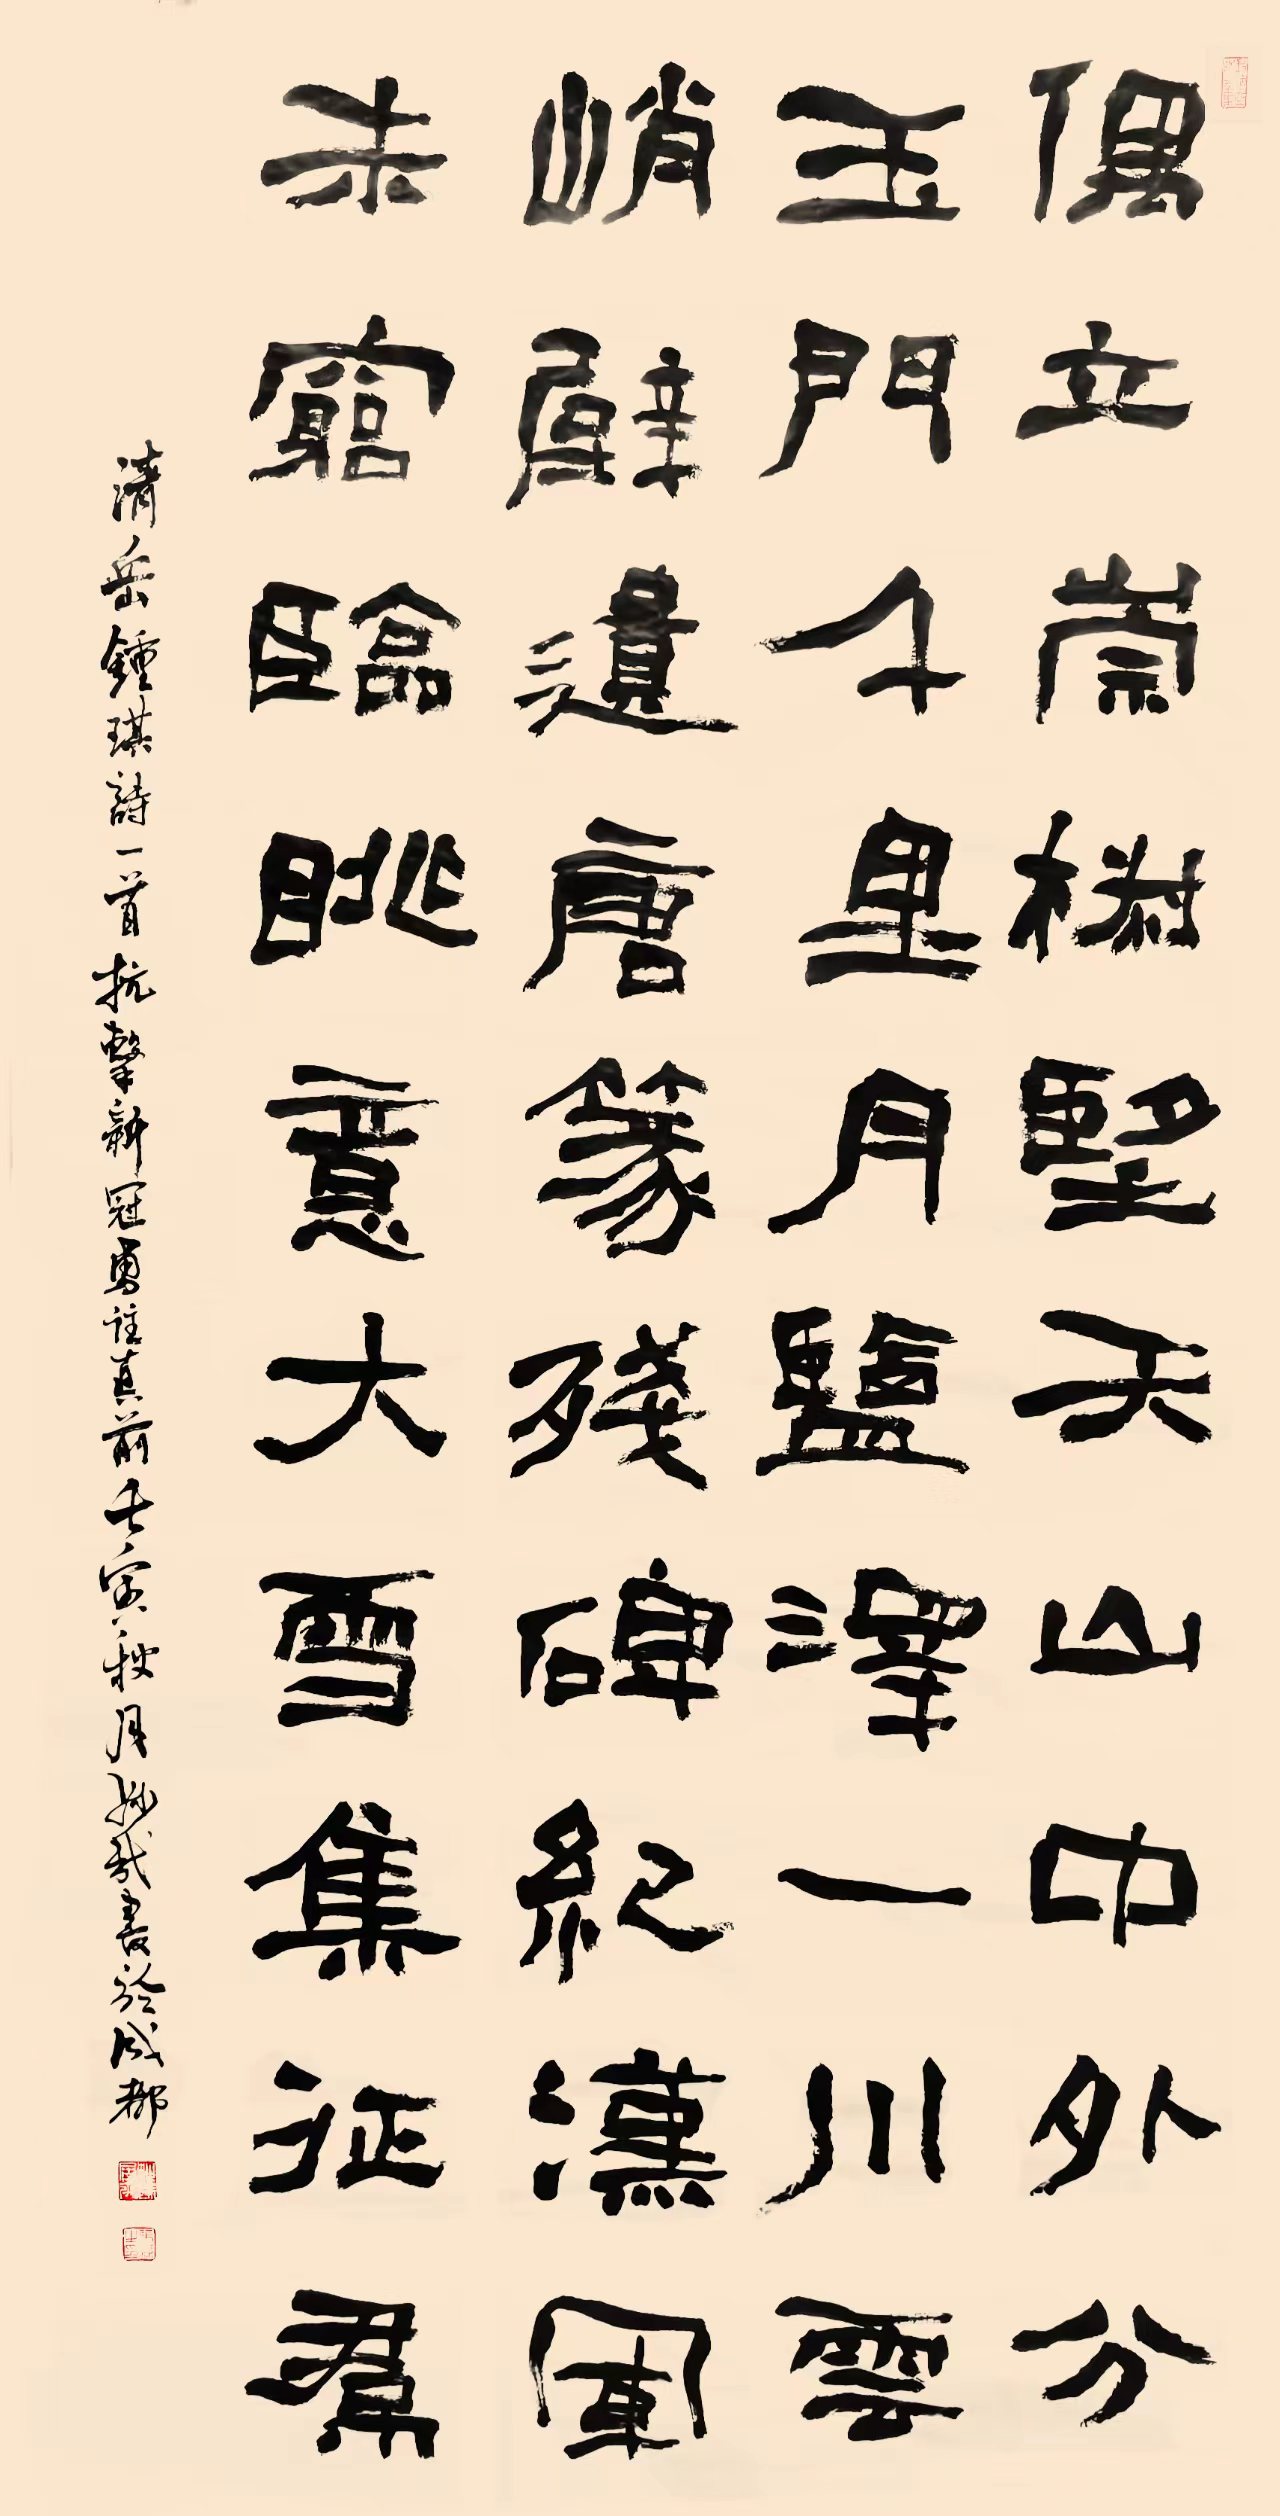 偶立崇椒望天山中外分
玉門千里月鹽澤一川雲
峭壁遺唐篆殘碑紀漢軍
未窮臨眺意大雪集征裙
清岳鍾琪詩一首抗擊新冠勇往直前壬寅秋月
書於成都